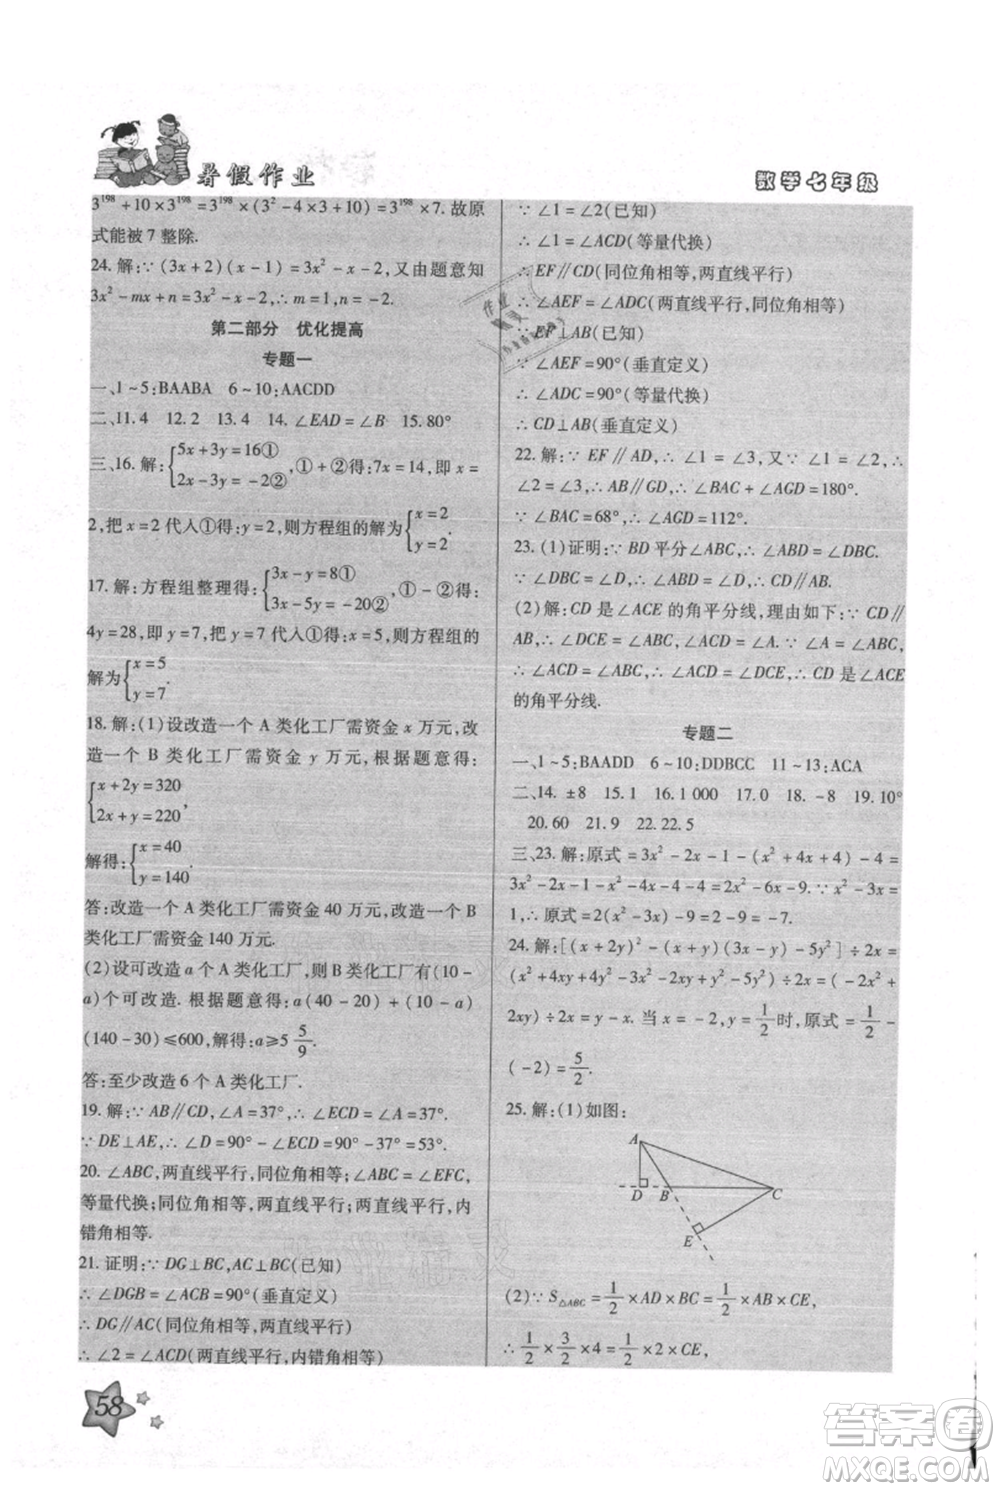 暑假作业
数学七年级
3^198+10×3^198=3^198×(3²-4×3+10)=3^198×7.故原
式能被7整除.
24.解:∵(3x+2)(x-1)=3x²-x-2,又由题意知
3x²-mx+n=3x²-x-2,∴m=1,n=-2.
第二部分 优化提高
专题一
一、1~5:BAABA 6~10:AACDD
二、11.4 12.2 13.4 14.∠EAD=∠B 15.80°
三、16.解:{5x+3y=16① 2x-3y=-2②,①+②得:7x=14,即x=
2,把x=2代入①得:y=2,则方程组的解为{x=2 y=2.
17.解:方程组整理得:{3x-y=8① 3x-5y=-20②,①-②得:
4y=28,即y=7,把y=7代入①得:x=5,则方程组的
解为{x=5 y=7.
18.解:(1)设改造一个A类化工厂需资金x万元,改
造一个B类化工厂需资金y万元,根据题意得:
{x+2y=320 2x+y=220,
解得:{x=40 y=140.
答:改造一个A类化工厂需资金40万元,改造一个B
类化工厂资金140万元.
(2)设可改造a个A类化工厂,则B类化工厂有(10-
a)个可改造.根据题意得:a(40-20)+(10-a)
(140-30)≤600,解得:a≥5 5/9.
答:至少改造6个A类化工厂.
19.解:∵AB∥CD,∠A=37°,∴∠ECD=∠A=37°.
∵DE⊥AE,∴∠D=90°-∠ECD=90°-37°=53°.
20.∠ABC,两直线平行,同位角相等;∠ABC=∠EFC,
等量代换;同位角相等,两直线平行;两直线平行,内
错角相等.
21.证明:∵DG⊥BC,AC⊥BC(已知)
∴∠DGB=∠ACB=90°(垂直定义)
∴DG∥AC(同位角相等,两直线平行)
∴∠2=∠ACD(两直线平行,内错角相等)
58
∵∠1=∠2(已知)
∴∠1=∠ACD(等量代换)
∴EF∥CD(同位角相等,两直线平行)
∴∠AEF=∠ADC(两直线平行,同位角相等)
∵EF⊥AB(已知)
∴∠AEF=90°(垂直定义)
∴∠ADC=90°(等量代换)
∴CD⊥AB(垂直定义)
22.解:∵EF∥AD,∴∠2=∠3,又∵∠1=∠2,∴
∠1=∠3,∴AB∥GD,∴∠BAC+∠AGD=180°.
∵∠BAC=68°,∴∠AGD=112°.
23.(1)证明:∵BD平分∠ABC,∴∠ABD=∠DBC.
∵∠DBC=∠D,∴∠ABD=∠D,∴CD∥AB.
(2)解:CD是∠ACE的角平分线,理由如下:∵CD∥
AB,∴∠DCE=∠ABC,∠ACD=∠A.∵∠A=∠ABC,
∴∠ACD=∠ABC,∴∠ACD=∠DCE,∴CD是∠ACE
的角平分线.
专题二
一、1~5:BAADD 6~10:DDBCC 11~13:ACA
二、14.±8 15.1 16.1 000 17.0 18.-8 19.10°
20.60 21.9 22.22.5
三、23.解:原式=3x²-2x-1-(x²+4x+4)-4=
3x²-2x-1-x²-4x-4-4=2x²-6x-9.∵x²-3x=
1,∴原式=2(x²-3x)-9=2-9=-7.
24.解:[(x+2y)²-(x+y)(3x-y)-5y²]÷2x=
(x²+4xy+4y²-3x²-2xy+y²-5y²)÷2x=(-2x²+
2xy)÷2x=y-x.当x=-2,y=1/2时,原式=1/2-
(-2)=5/2.
25.解:(1)如图:
A
D B C
E
(2)∵S△ABC=1/2×AD×BC=1/2×AB×CE,
∴1/2×3/2×4=1/2×2×CE,
答案圈
MXQE.COM